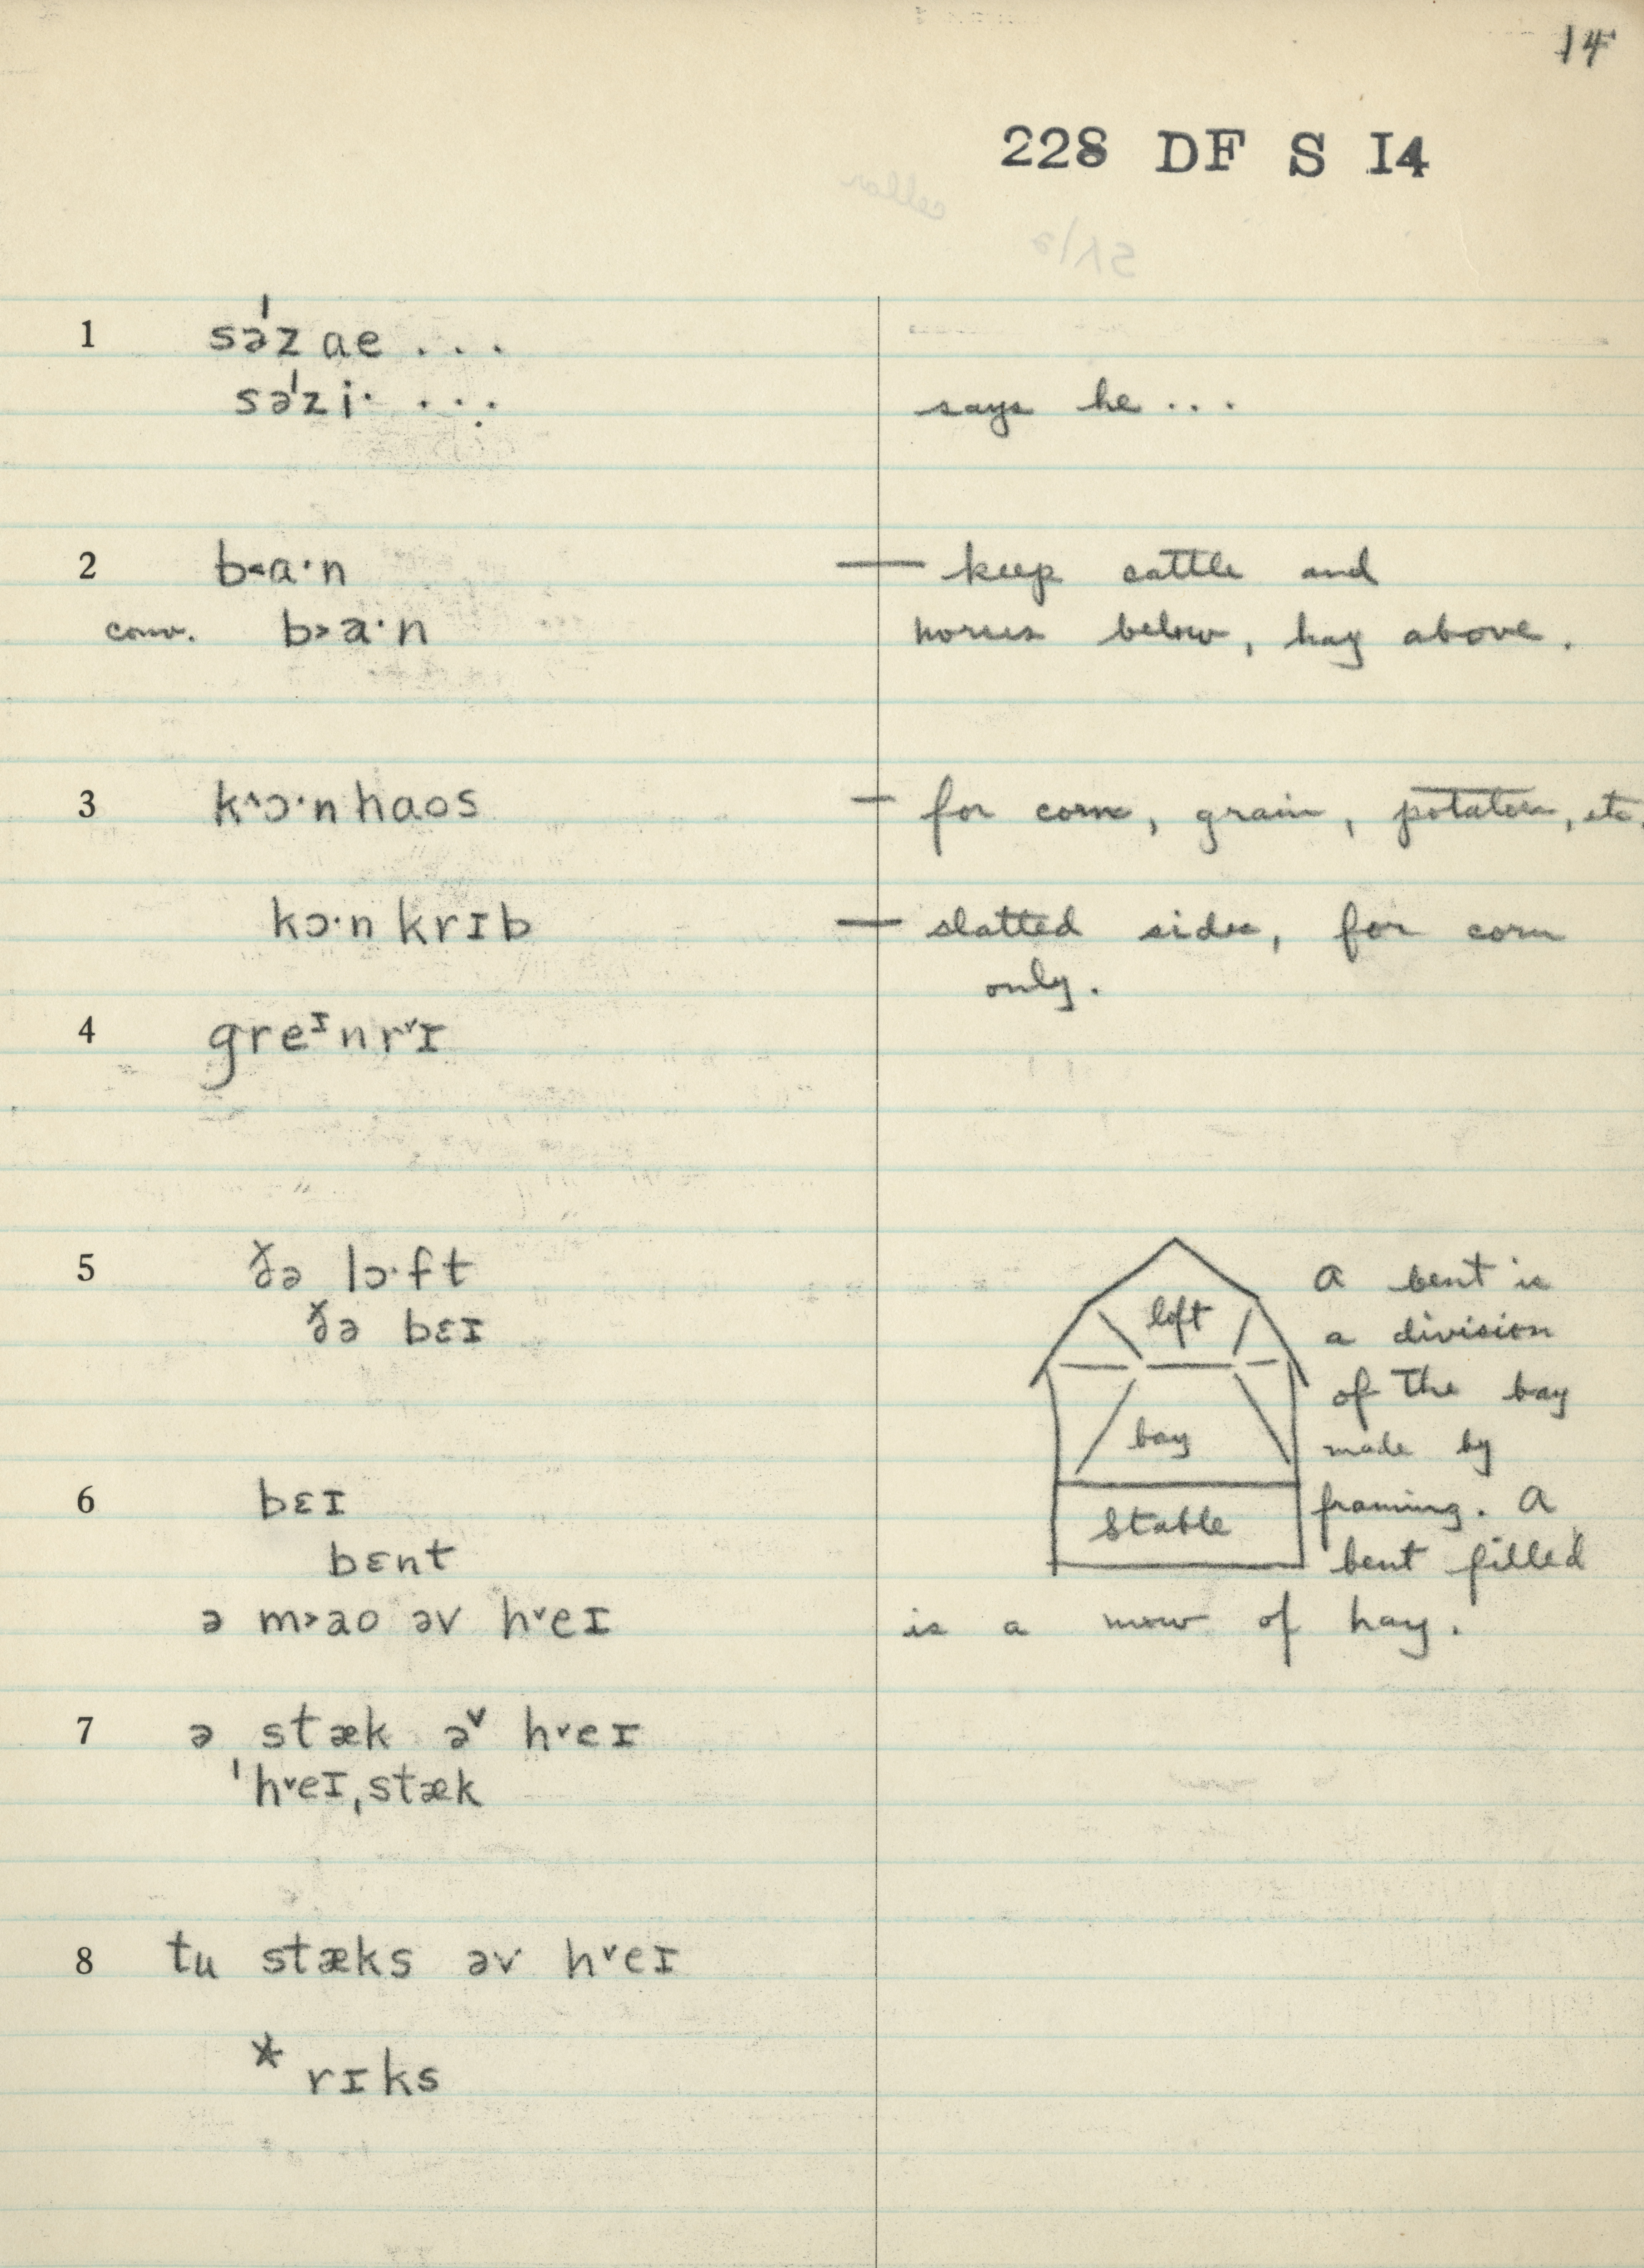 14
228 DF S I4
1 səˈz ae . . .
səˈz i· . . .
says he . . .
2 b˂a·n — keep cattle and
conv. b˃a·n horses below, hay above.
3 k^ɔ·n haos — for corn, grain, potatoes, etc.
kɔ·n krɪb — slatted sides, for corn
only.
4 greᴵnrˇɪ
5 ðə lɔ·ft
ðə bɛɪ
loft
bay
stable
A bent is
a division
of the bay
made by
framing. A
bent filled
is a mow of hay.
6 bɛɪ
bɛnt
ə m˃ao əv hˇeɪ
7 ə stæk əᵛ hˇeɪ
ˈhˇeɪˌstæk
8 tu stæks əv hˇeɪ
* rɪks